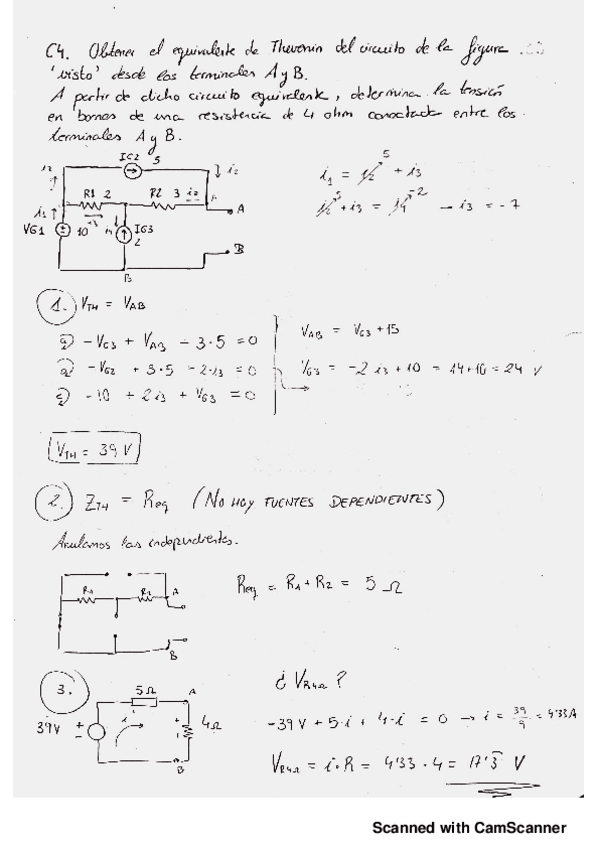 C4. Obtener el equivalente de Thevenin del circuito de la figura
'visto' desde los terminales A y B.
A partir de dicho circuito equivalente, determina la tensión
en bornes de una resistencia de 4 ohm conectada entre los
terminales A y B.
IG2 5
i2
i2
R1 2
R2 3 i2
A
i1
VG1
10
i4
IG3
2
B
B
i1 = i2 + i3
5
i2 + i3 = i4 → i3 = -7
5
-2
1. VTH = VAB
a) -VG3 + VAB - 3·5 = 0
a) -VG2 + 3·5 - 2·i3 = 0
a) -10 + 2i3 + VG3 = 0
VAB = VG3 + 15
VG3 = -2 i3 + 10 = 14+10 = 24 V
VTH = 39 V
2. ZTH = Req (NO HAY FUENTES DEPENDIENTES)
Anulamos las independientes.
R1
R2
A
B
Req = R1 + R2 = 5 Ω
3.
5Ω
A
39V
+
-
i
+
-
4Ω
B
¿ VR4Ω ?
-39V + 5·i + 4·i = 0 → i = 39/9 = 4'33A
VR4Ω = i·R = 4'33 · 4 = 17'3 V
Scanned with CamScanner